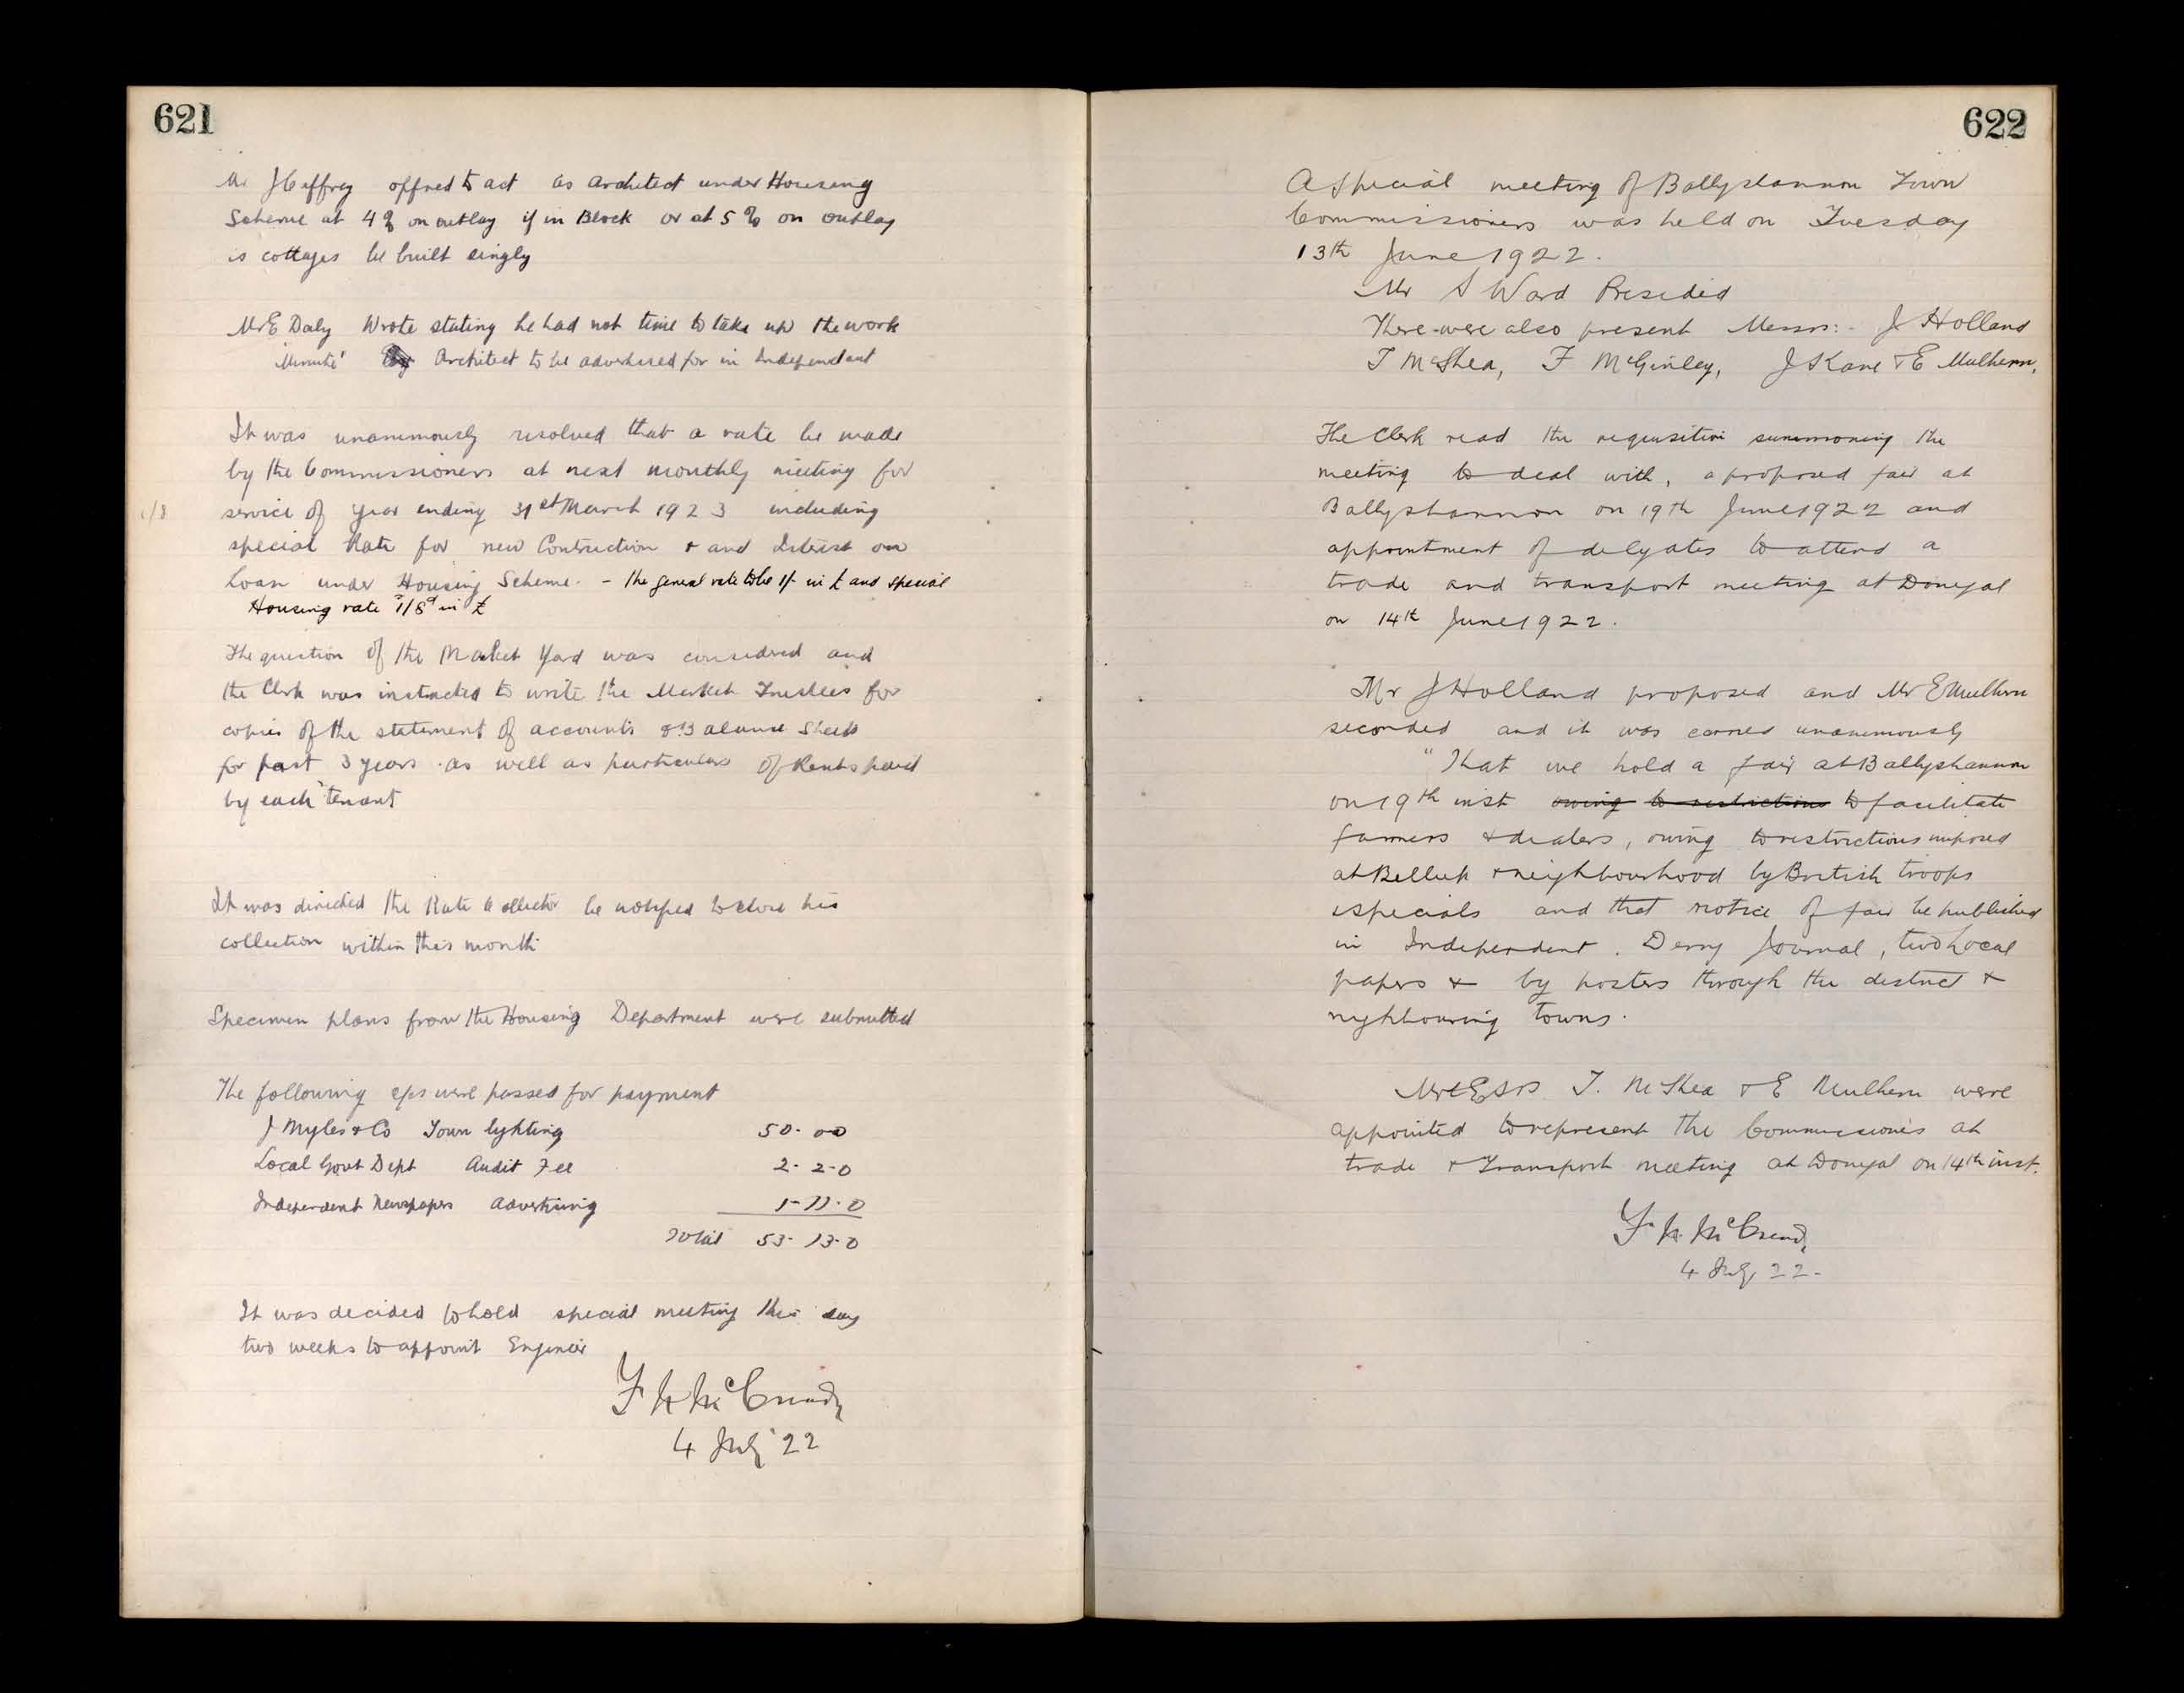 621
Mr J Caffrey offred to act as Architect under Housing
Scheme at 4% on outlay if in Block or at 5% on outlay
is cottages be built singly
Mr E Daly Wrote stating he had not time to take up the work
'Minute' Architect to be advertised for in Independant
It was unanimously resolved that a rate be made
by the Commissioners at next monthly meeting for
1/8
service of year ending 31st March 1923 including
special Rate for new Contruction & and Interest on
Loan under Housing Scheme. - the general rate to be 1/- in £ and special
Housing rate 1/8d in £
The question of the Market Yard was considered and
the Clerk was instructed to write the Market Trustees for
copies of the statement of accounts & Balance Sheets
for past 3 years as well as particulars of Rents paid
by each tenant
It was directed the Rate Collector be notified to close his
collection within this month
Specimen plans from the Housing Department were submitted
The following a/cs were passed for payment
J Myles & Co Town lighting 50. 00
Local Govt Dept Audit Fee 2. 2-0
Independent Newspapers Advertising 1-11.0
Total 53. 13-0
It was decided to hold special meeting this day
two weeks to appoint Engineer
4 July '22
622
A Special meeting of Ballyshannon Town
Commissioners was held on Tuesday
13th June 1922.
Mr S Ward Presided
There were also present Messrs:- J Holland
T McShea, F McGinley, J Kane & E Mulhern,
The Clerk read the requisition summoning the
meeting to deal with, a proposed fair at
Ballyshannon on 19th June 1922 and
appointment of delgates to attend a
trade and transport meeting at Donegal
on 14th June 1922.
Mr J Holland proposed and Mr E Mulhern
seconded and it was carried unanimously
"That we hold a fair at Ballyshannon
on 19th inst owing to restrictions to facilitate
farmers & dealers, owing to restrictions imposed
at Belleek & neighbourhood by British troops
& specials and that notice of fair be published
in Independent. Derry Journal, two Local
papers & by posters through the district &
neighbouring towns.
Messrs. T. McShea & E Mulhern were
appointed to represent the Commissioners at
trade & Transport meeting at Donegal on 14th inst.
4 July 22.